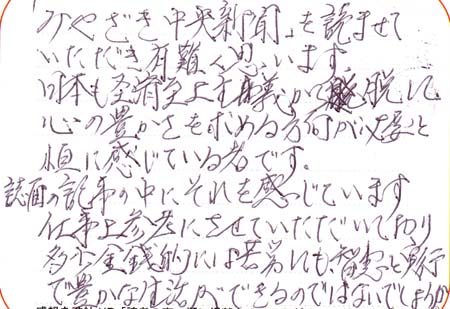 「みやざき中央新聞」を読ませて
いただき有難く思います。
日本も経済至上主義から脱して
心の豊かさを求める方向が必要と
恒に感じている者です。
誌面の記事の中にそれを感じています
仕事上参考にさせていただいており
多少金銭的には苦労しても、智恵と実行
で豊かな生活ができるのではないでしょうか